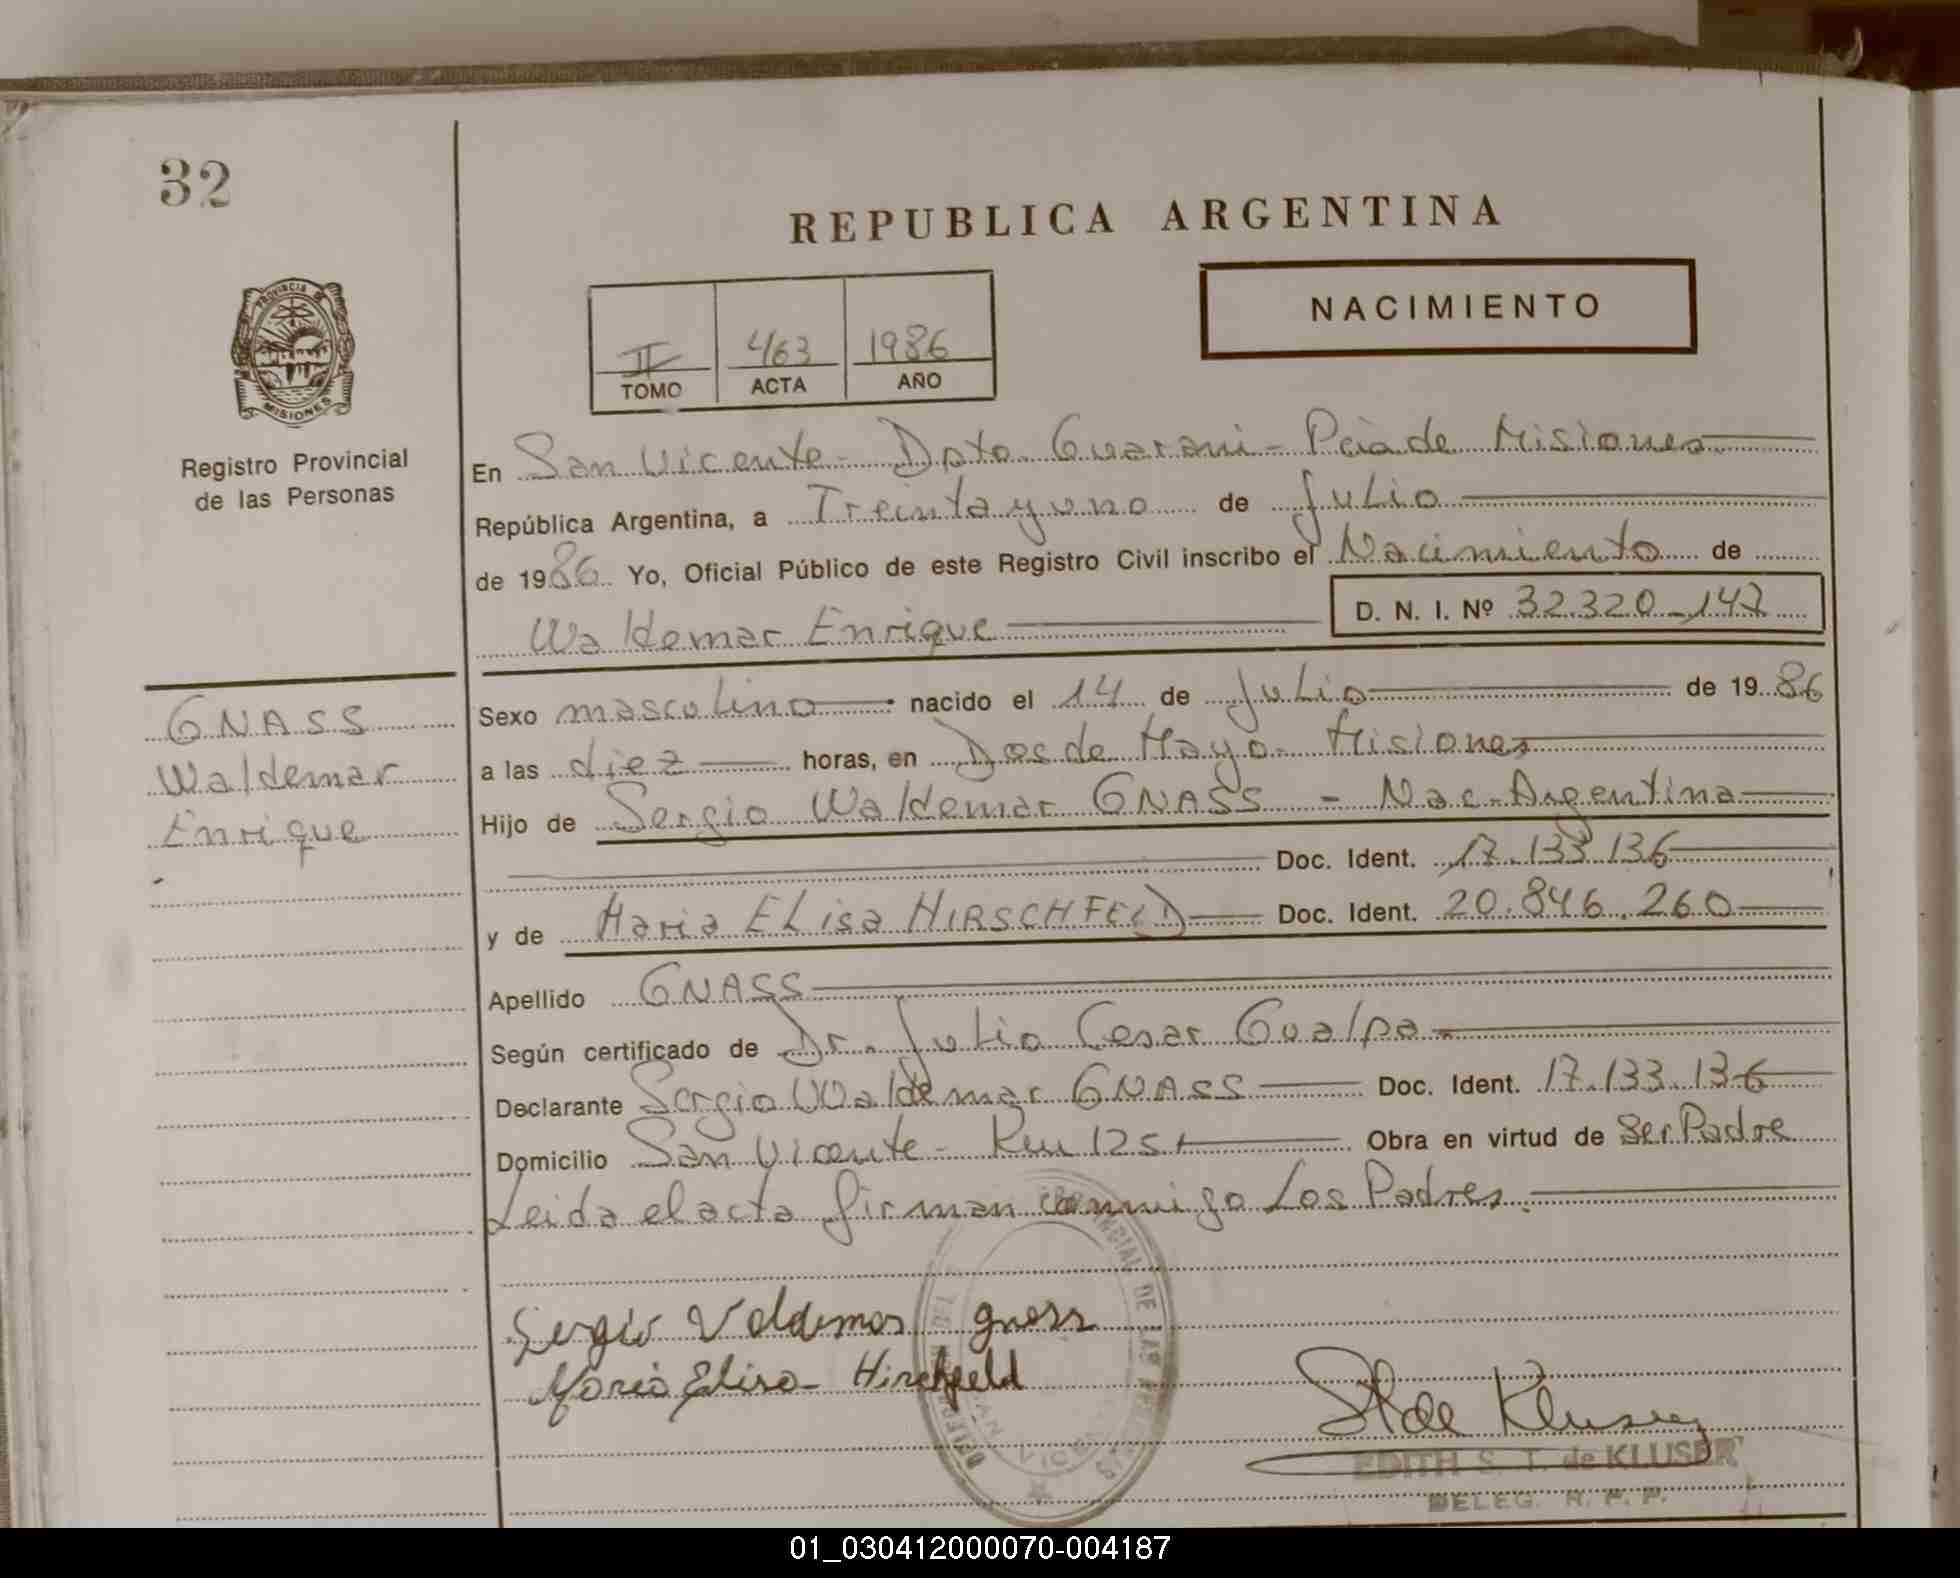 32
REPUBLICA ARGENTINA
NACIMIENTO
II 463 1986
TOMO ACTA AÑO
PROVINCIA DE MISIONES
Registro Provincial
de las Personas
En San Vicente - Dpto. Guarani - Pcia de Misiones
República Argentina, a Treinta y uno de Julio
de 1986 Yo, Oficial Público de este Registro Civil inscribo el Nacimiento de
Waldemar Enrique D. N. I. Nº 32.320-147
GNASS
Waldemar
Enrique
Sexo masculino nacido el 14 de Julio de 1986
a las diez horas, en Dos de Mayo - Misiones
Hijo de Sergio Waldemar GNASS - Nac. Argentina
Doc. Ident. 17.133.136
y de Maria ELisa HIRSCHFELD Doc. Ident. 20.846.260
Apellido GNASS
Según certificado de Dr. Julio Cesar Gualpa.
Declarante Sergio Waldemar GNASS Doc. Ident. 17.133.136
Domicilio San Vicente - Km 1251 Obra en virtud de Ser Padre
Leida el acta firman conmigo Los Padres.
Sergio Valdemar gnass
Maria Elisa Hirschfeld
de Kluser
EDITH S. T. de KLUSER
DELEG. R. P. P.
01_030412000070-004187